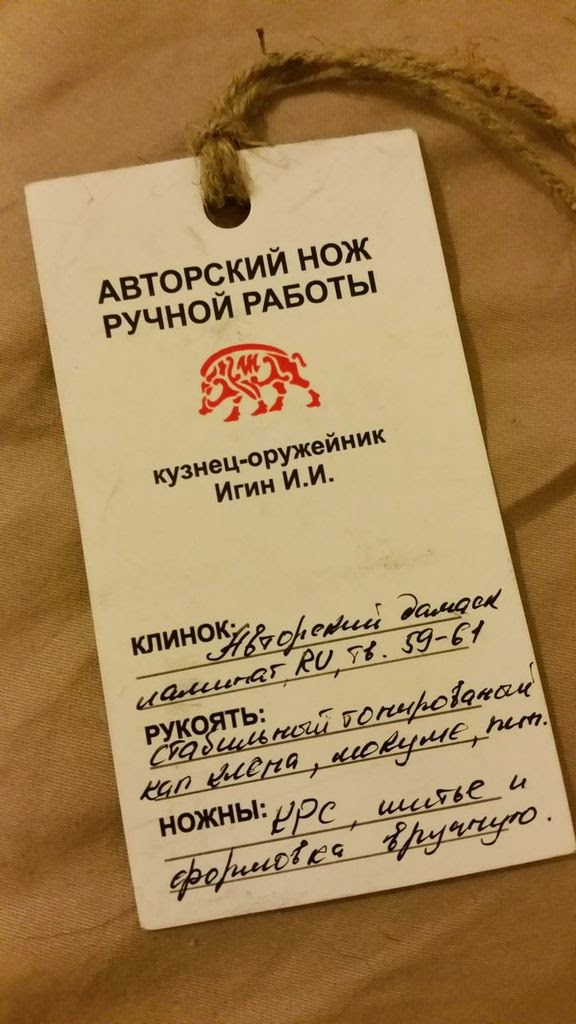 АВТОРСКИЙ НОЖ
РУЧНОЙ РАБОТЫ
кузнец-оружейник
Игин И.И.
КЛИНОК: Авторский дамаск
ламинат, RU, тв. 59-61
РУКОЯТЬ:
стабильный тонированый
кап клена, мокуме, пит.
НОЖНЫ: КРС, шитье и
формовка вручную.